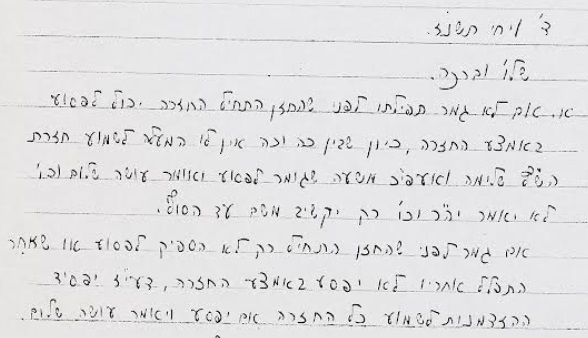 ד' ויחי תשנ"ז.
שלו' וברכה.
א. אם לא גמר תפילתו לפני שהחזן התחיל החזרה יכול לפסוע
באמצע החזרה, כיון שבין כה וכה אין לו המעל' לשמוע חזרת
הש"ץ שלימה ואעפ"כ משעה שגומר לפסוע ואומר עושה שלום וכו'
לא יאמר יה"ר וכו' רק יקשיב משם עד הסוף.
אם גמר לפני שהחזן התחיל רק לא הספיק לפסוע או שאחר
התפלל אחריו לא יפסע באמצע החזרה, דעי"ז יפסיד
ההזדמנות לשמוע כל החזרה אם יפסע ויאמר עושה שלום